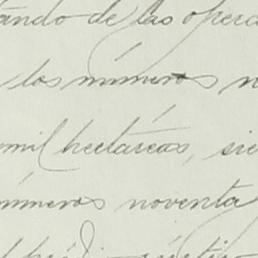 tando de las opera
los números n
mil hectáreas, sie
números noventa